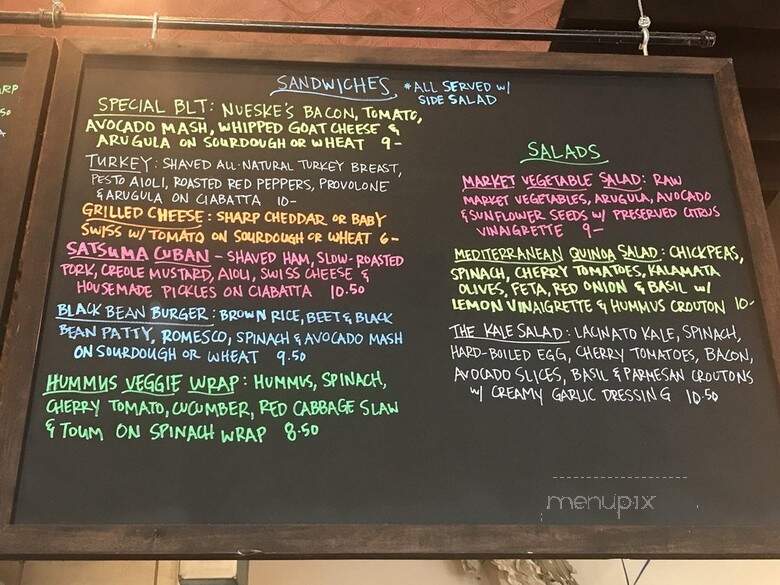 SANDWICHES *ALL SERVED w/
SIDE SALAD
SPECIAL BLT: NUESKE'S BACON, TOMATO,
AVOCADO MASH, WHIPPED GOAT CHEESE &
ARUGULA ON SOURDOUGH OR WHEAT 9-
TURKEY: SHAVED ALL-NATURAL TURKEY BREAST,
PESTO AIOLI, ROASTED RED PEPPERS, PROVOLONE
& ARUGULA ON CIABATTA 10-
GRILLED CHEESE: SHARP CHEDDAR OR BABY
SWISS W/ TOMATO ON SOURDOUGH OR WHEAT 6-
SATSUMA CUBAN - SHAVED HAM, SLOW-ROASTED
PORK, CREOLE MUSTARD, AIOLI, SWISS CHEESE &
HOUSEMADE PICKLES ON CIABATTA 10.50
BLACK BEAN BURGER: BROWN RICE, BEET & BLACK
BEAN PATTY, ROMESCO, SPINACH & AVOCADO MASH
ON SOURDOUGH OR WHEAT 9.50
HUMMUS VEGGIE WRAP: HUMMUS, SPINACH,
CHERRY TOMATO, CUCUMBER, RED CABBAGE SLAW
& TOUM ON SPINACH WRAP 8.50
SALADS
MARKET VEGETABLE SALAD: RAW
MARKET VEGETABLES, ARUGULA, AVOCADO
& SUNFLOWER SEEDS W/ PRESERVED CITRUS
VINAIGRETTE 9-
MEDITERRANEAN QUINOA SALAD: CHICKPEAS,
SPINACH, CHERRY TOMATOES, KALAMATA
OLIVES, FETA, RED ONION & BASIL w/
LEMON VINAIGRETTE & HUMMUS CROUTON 10-
THE KALE SALAD: LACINATO KALE, SPINACH,
HARD-BOILED EGG, CHERRY TOMATOES, BACON,
AVOCADO SLICES, BASIL & PARMESAN CROUTONS
w/ CREAMY GARLIC DRESSING 10.50
menupix